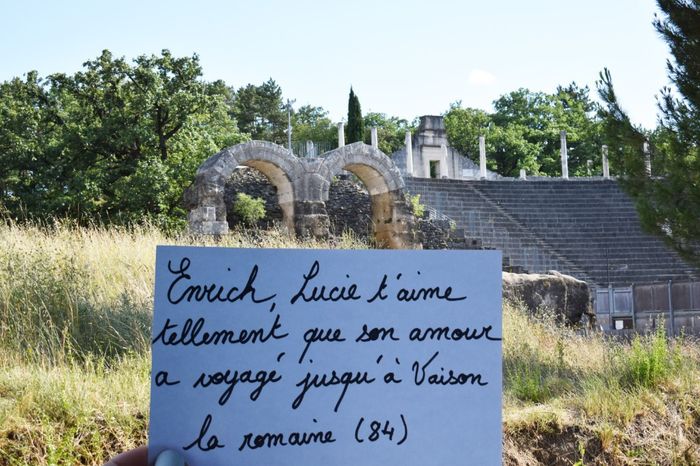 Enrich, Lucie t'aime
tellement que son amour
a voyagé jusqu'à Vaison
la romaine (84)